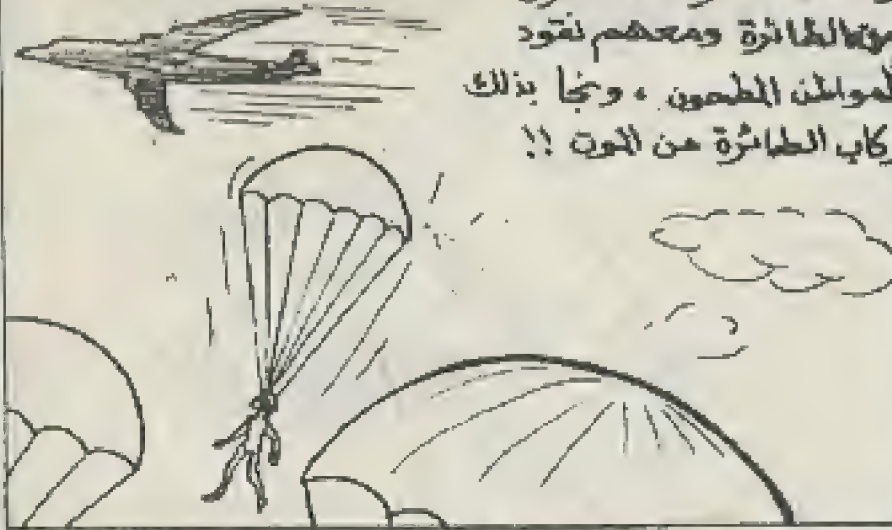 الطائرة ومعهم نقود
المواطن المطحون ، ونجا بذلك
ركاب الطائرة من الموت !!